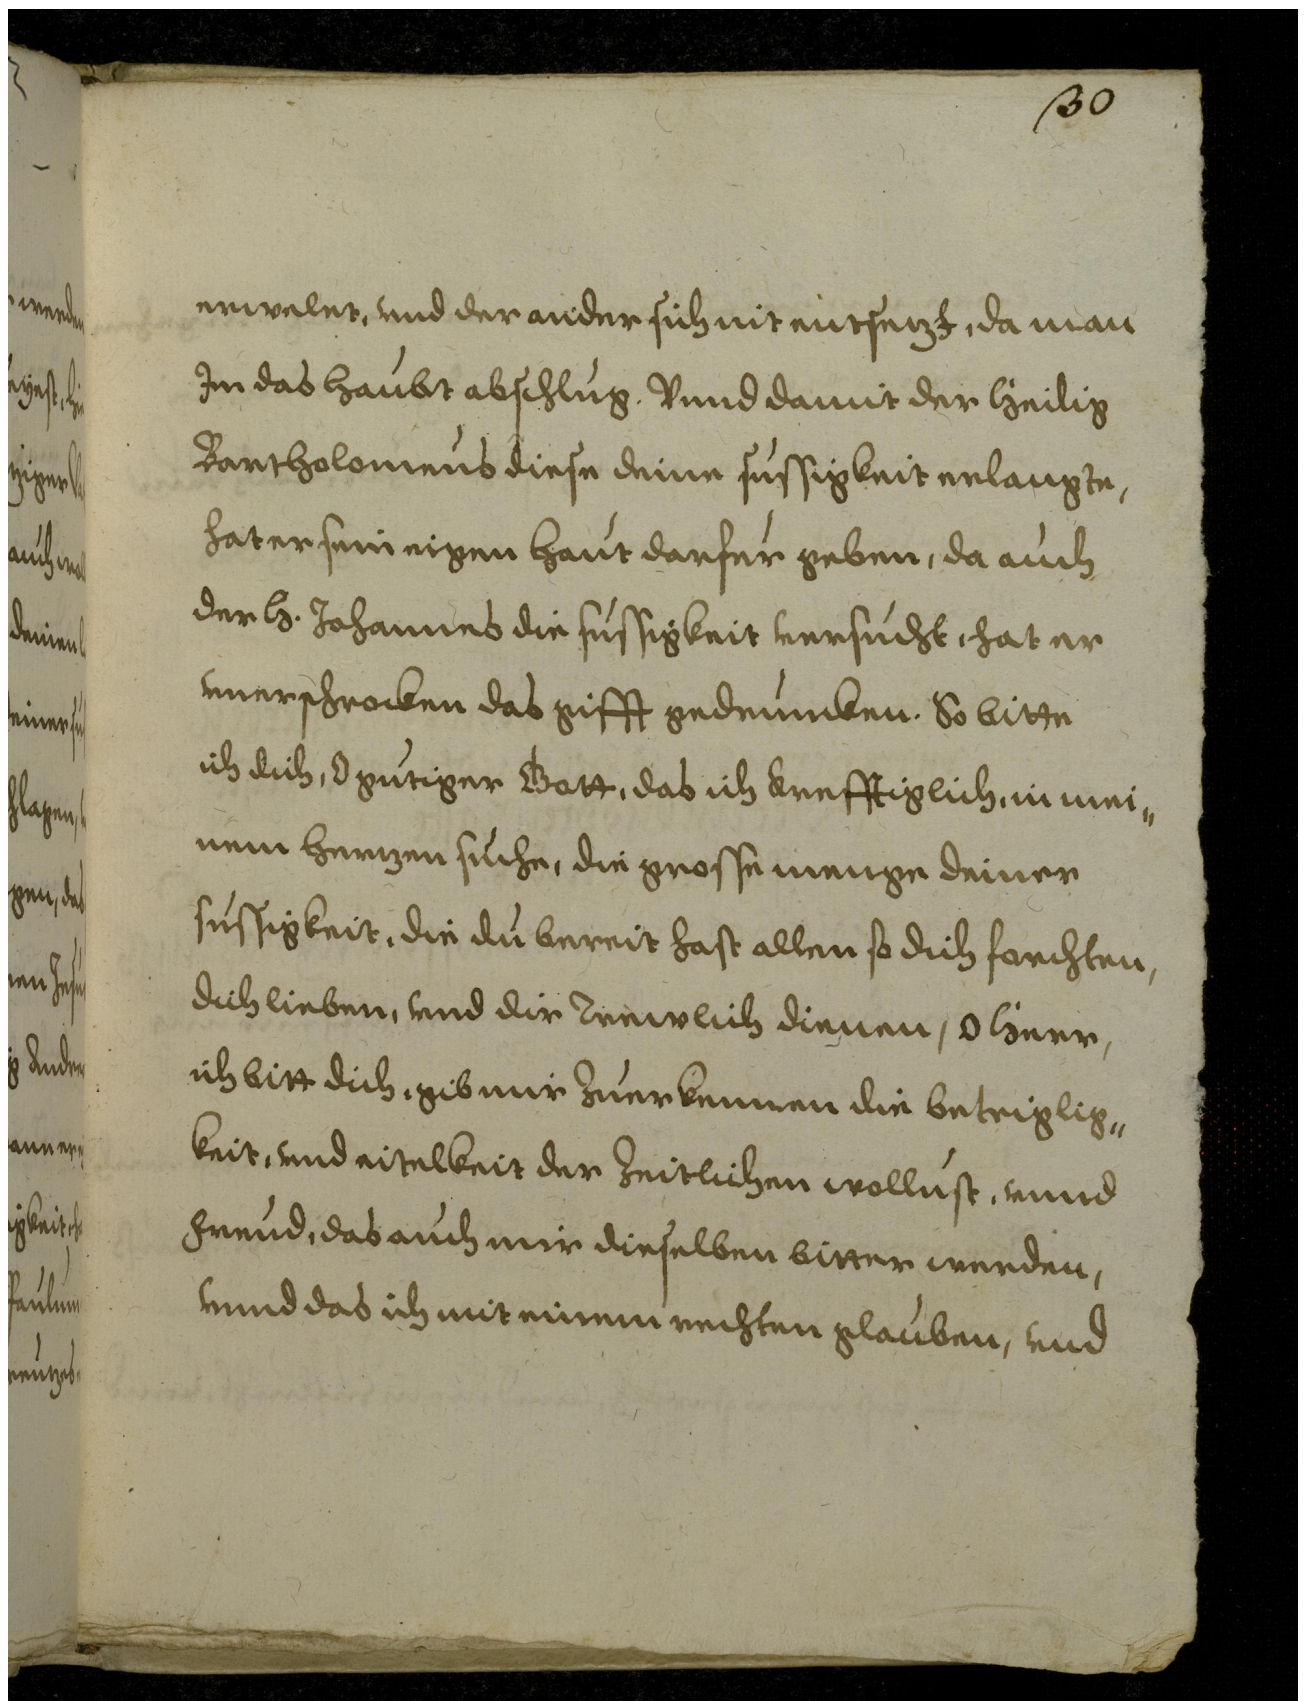 130
erwelet, vnd der ander sich nit entsetzt, da man
Im das haubt abschlug. Vnnd damit der heilig
Bartholomeus diese deine süssigkeit erlangte,
hat er sein eigen haut darfür geben, da auch
der h. Johannes die süssigkeit versücht, hat er
vnerschrocken das gifft gedruncken. So bitte
ich dich, O gütiger Gott, das ich krefftiglich, in mei„
nem hertzen süche, die grosse menge deiner
süssigkeit, die du bereit hast allen so dich forchten,
dich lieben, vnd dir Trewlich dienen, O herr,
ich bitt dich, gib mir zuerkennen die betriglig„
keit, vnd eitelkeit der zeitlichen wollust, vnnd
freud, das auch mir dieselben bitter werden,
vnnd das ich mit einem rechten glauben, vnd